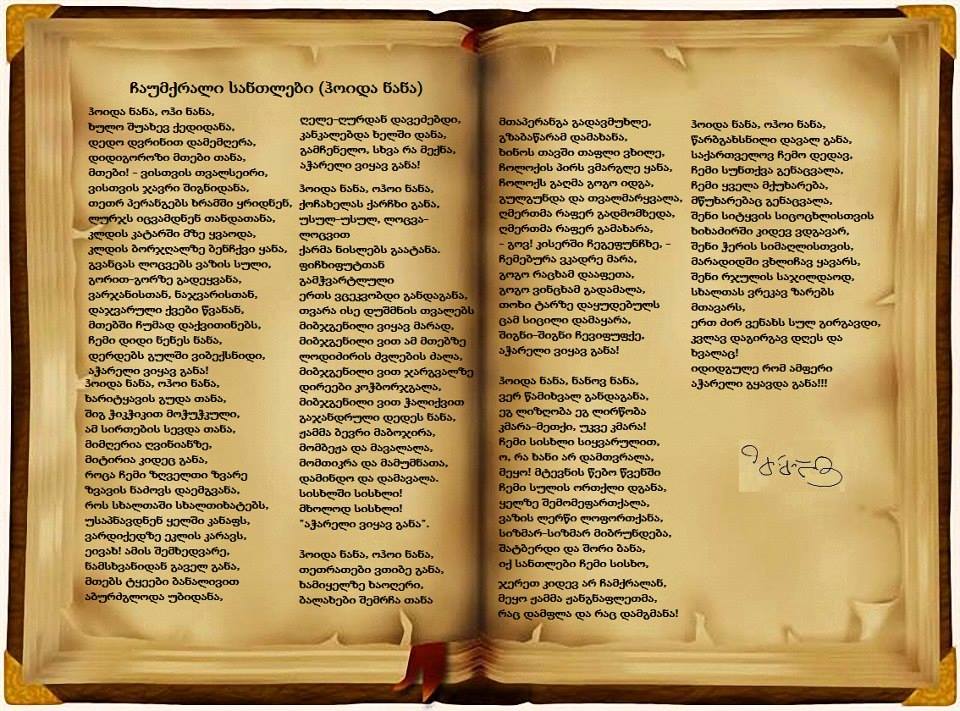 ჩაუმქრალი სანთლები (ჰოიდა ნანა)
ჰოიდა ნანა, ოჰი ნანა,
ხულო შუახევ ქედიდანა,
დედო დვრინით დამემღერა,
დიდიგოროზი მთები თანა,
მთები! - ვისთვის თვალსეირი,
ვისთვის ჯავრი შიგნიდანა,
თეთრ პერანგებს ხრამში ყრიდნენ,
ლურჯს იცვამდნენ თანდათანა,
კლდის კატარში მზე ყვაოდა,
კლდის ბორჯღალზე ბენჩქვი ყანა,
გვანცას ლოცვებს ვაზის სული,
გორით-გორზე გადეყვანა,
ვარჯანისთან, ნაჯვარისთან,
დაჯვარული ქვები წვანან,
მთებში ჩუმად დაქვითინებს,
ჩემი დიდი ნენეს ნანა,
დერდებს გულში ვიბექსნიდი,
აჭარელი ვიყავ განა!
ჰოიდა ნანა, ოჰოი ნანა,
ხარიტყავის გუდა თანა,
შიგ ჭიკჭიკით მოჭუჭკული,
ამ სირთების სევდა თანა,
მიმღერია ღვინიანზე,
მიტირია კიდეც განა,
როცა ჩემი ზღველთი ზვარე
ზვავის ნამოვს დაემგვანა,
როს სხალთაში სხალთიხატებს,
უსაპნავდნენ ყელში კანაფს,
ვარდიქედზე ეკლის კარავს,
ეივახ! ამის შემხედვარე,
ნამსხვანიდან გაველ განა,
მთებს ტყეები ბანალივით
აბურძგლოდა უბიდანა,
ღელე-ღურდან დავეძებდი,
კანკალებდა ხელში დანა,
გამჩენელო, სხვა რა მექნა,
აჭარელი ვიყავ განა!
ჰოიდა ნანა, ოჰოი ნანა,
ქოჩახელას ქარჩხი განა,
უსულ-უსულ, ლოცვა-
ლოცვით
ქარმა ნისლებს გაატანა.
ფიჩხიფუტთან
გამჭვარტლული
ერთს ვცეკვობდი განდაგანა,
თვარა ისე დუშმნის თვალებს
მიბჯგენილი ვიყავ მარად,
მიბჯგენილი ვით ამ მთებზე
ლოდიძირის ძვლების ძალა,
მიბჯგენილი ვით ჯარგვალზე
დირეები კოჭბორჯგალა,
მიბჯგენილი ვით ჭალიქვით
გაჯანდრული დედეს ნანა,
ჟამმა ბევრი მაბოჯირა,
მომბეჟა და მავალალა,
მომთიკრა და მამუმნათა,
დამინდო და დამავალა.
სისხლში სისხლი!
მხოლოდ სისხლი!
"აჭარელი ვიყავ განა".
ჰოიდა ნანა, ოჰოი ნანა,
თეთრათები ვთიბე განა,
ხამიყელზე ხაოღერი,
ბალახები შემრჩა თანა
მთაპერანგა გადავმუხლე,
გზაბაწარამ დამახანა,
ხინოს თავში თაფლი ვხილე,
ჩოლოქის პირს ვმარგლე ყანა,
ჩოლოქს გაღმა გოგო იდგა,
გულგუნდა და თვალმარყვალა,
ღმერთმა რაფერ გადმომხედა,
ღმერთმა რაფერ გამახარა,
- გოვ! კისერში ჩეგეფუნჩხე, -
ჩემებურა ვკადრე მარა,
გოგო რაცხამ დააფეთა,
გოგო ვინცხამ გადამალა,
თოხი ტარზე დაყუდებულს
ცამ სიცილი დამაყარა,
შიგნი-შიგნი ჩევიფუფქე,
აჭარელი ვიყავ განა!
ჰოიდა ნანა, ნანოვ ნანა,
ვერ წამიხვალ განდაგანა,
ეგ ლიზღობა ეგ ლირწობა
კმარა-მეთქი, უკვე კმარა!
ჩემი სისხლი სიყვარულით,
ო, რა ხანი არ დამთვრალა,
მეყო! მტევნის წებო წვენში
ჩემი სულის ორთქლი დგანა,
ყელზე შემომეფართქალა,
ვაზის ლერწი ლოფორთქანა,
სიზმარ-სიზმარ მიბრუნდება,
შატბერდი და შორი ბანა,
იქ სანთლები ჩემი სისხო,
ჯერეთ კიდევ არ ჩამქრალან,
მეყო ჟამმა ჟანგნაფლეთმა,
რაც დამფლა და რაც დამგმანა!
ჰოიდა ნანა, ოჰოი ნანა,
წარბგახსნილი დავალ განა,
საქართველოვ ჩემო დედავ,
ჩემი სუნთქვა გენაცვალა,
ჩემი ყველა მქუხარება,
მწუხარებაც გენაცვალა,
შენი სიტყვის სიცოცხლისთვის
ხიხამირში კიდევ ვდგავარ,
შენი ჭერის სიმაღლისთვის,
მარადიდში ვხლიჩავ ყავარს,
შენი რჯულის საჯილდაოდ,
სხალთას ვრეკავ ზარებს
მთავარს,
ერთ ძირ ვენახს სულ გირგავდი,
კვლავ დაგირგავ დღეს და
ხვალაც!
იდიდგულე რომ ამფერი
აჭარელი გყავდა განა!!!